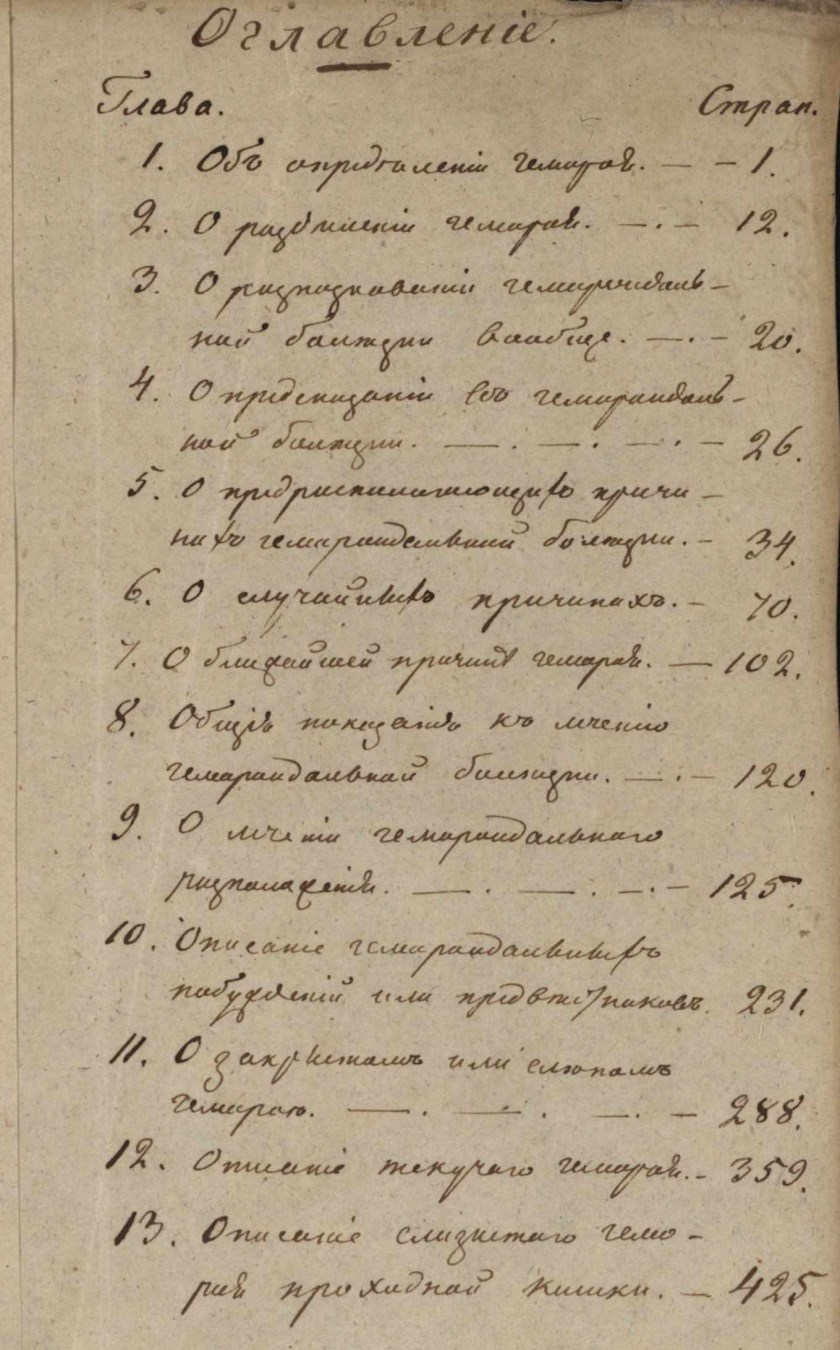 Оглавленіе.
Глава. Стран.
1. Объ опредѣленіи гемороя. — – 1.
2. О раздѣленіи гемороя. —.— 12.
3. О разпознаваніи гемороидаль–
ной болѣзни вообще. —.– 20.
4. О предсказаніи въ гемороидаль–
ной болѣзни. —. —. —. – 26.
5. О предрасполагающихъ причи–
нахъ гемороидальной болѣзни. – 34.
6. О случайныхъ причинахъ. – 70.
7. О ближайшей причинѣ гемороя. — 102.
8. Общія показанія къ лѣченію
гемороидальной болѣзни. —.– 120.
9. О лѣченіи гемороидальнаго
разположенія. —. —. —.– 125.
10. Описаніе гемороидальныхъ
побужденій или предвѣстниковъ. 231.
11. О закрытомъ или слѣпомъ
гемороѣ. —. —. —. – 288.
12. Описаніе текучаго гемороя. – 359.
13. Описаніе слизистаго гемо–
роя проходной кишки. – 425.